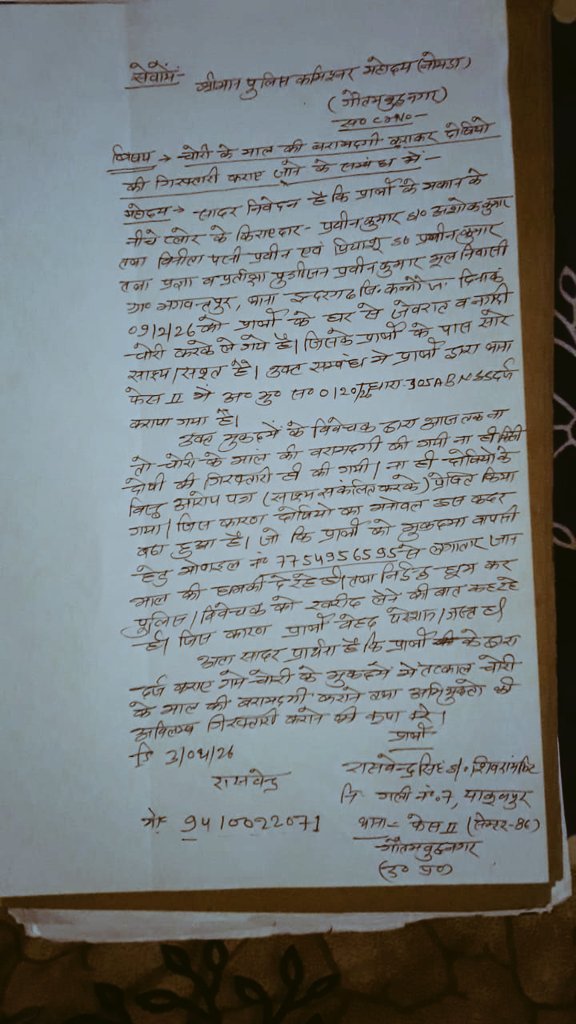 सेवामें-
श्रीमान पुलिस कमिश्नर महोदय (नोएडा)
(गौतमबुद्धनगर)
उ०प्र०
विषय → चोरी के माल की बरामदगी कराकर दोषियो
की गिरफ्तारी कराए जाने के सम्बंध में-
महोदय → सादर निवेदन है कि प्रार्थी के मकान के
नीचे फ्लोर के किराएदार- प्रवीन कुमार S/o अशोक कुमार
तथा विनीता पत्नी प्रवीन एवं प्रियांशु S/o प्रवीन कुमार
तथा प्रज्ञा व प्रतीक्षा पुत्रीजन प्रवीन कुमार मूल निवासी
ग्रा० भगवन्तपुर, थाना इन्दरगढ जि. कन्नौज दिनांक
09/2/26 को प्रार्थी के घर से जेवरात व नगदी
चोरी करके ले गये है। जिसके प्रार्थी के पास सारे
साक्ष्य/सबूत है। उक्त सम्बंध मे प्रार्थी द्वारा थाना
फेस II में अ० मु० स० 0120/26 धारा-305A BNS दर्ज
कराया गया है।
उक्त मुकदमें के विवेचक द्वारा आज तक ना
तो चोरी के माल की बरामदगी की गयी ना ही किसी
दोषी की गिरफ्तारी ही की गयी। ना ही दोषियो के
विरुद्ध आरोप पत्र (साक्ष्य संकलित करके) प्रेषित किया
गया। जिस कारण दोषियो का मनोबल इस कदर
बढा हुआ है। जो कि प्रार्थी को मुकदमा वापसी
हेतु मोबाइल नं० 7754956595 से लगातार जान
माल की धमकी दे रहे है। तथा निडर घूम कर
पुलिस/विवेचक को खरीद लेने की बात कह रहे
है। जिस कारण प्रार्थी बेहद परेशान/त्रस्त है।
अतः सादर प्रार्थना है कि प्रार्थी के द्वारा
दर्ज कराए गये चोरी के मुकदमे मे तत्काल चोरी
के माल की बरामदगी कराने तथा अभियुक्तो की
अविलम्ब गिरफ्तारी कराने की कृपा करे।
दि 3/04/26
प्रार्थी
राघवेन्द्र
राघवेन्द्र सिंह S/o शिवराम सिंह
नि गली नं०.7, याकूबपुर
मो० 9410022071
थाना- फेस II (सेक्टर-86)
गौतमबुद्धनगर
(उ० प्र०)